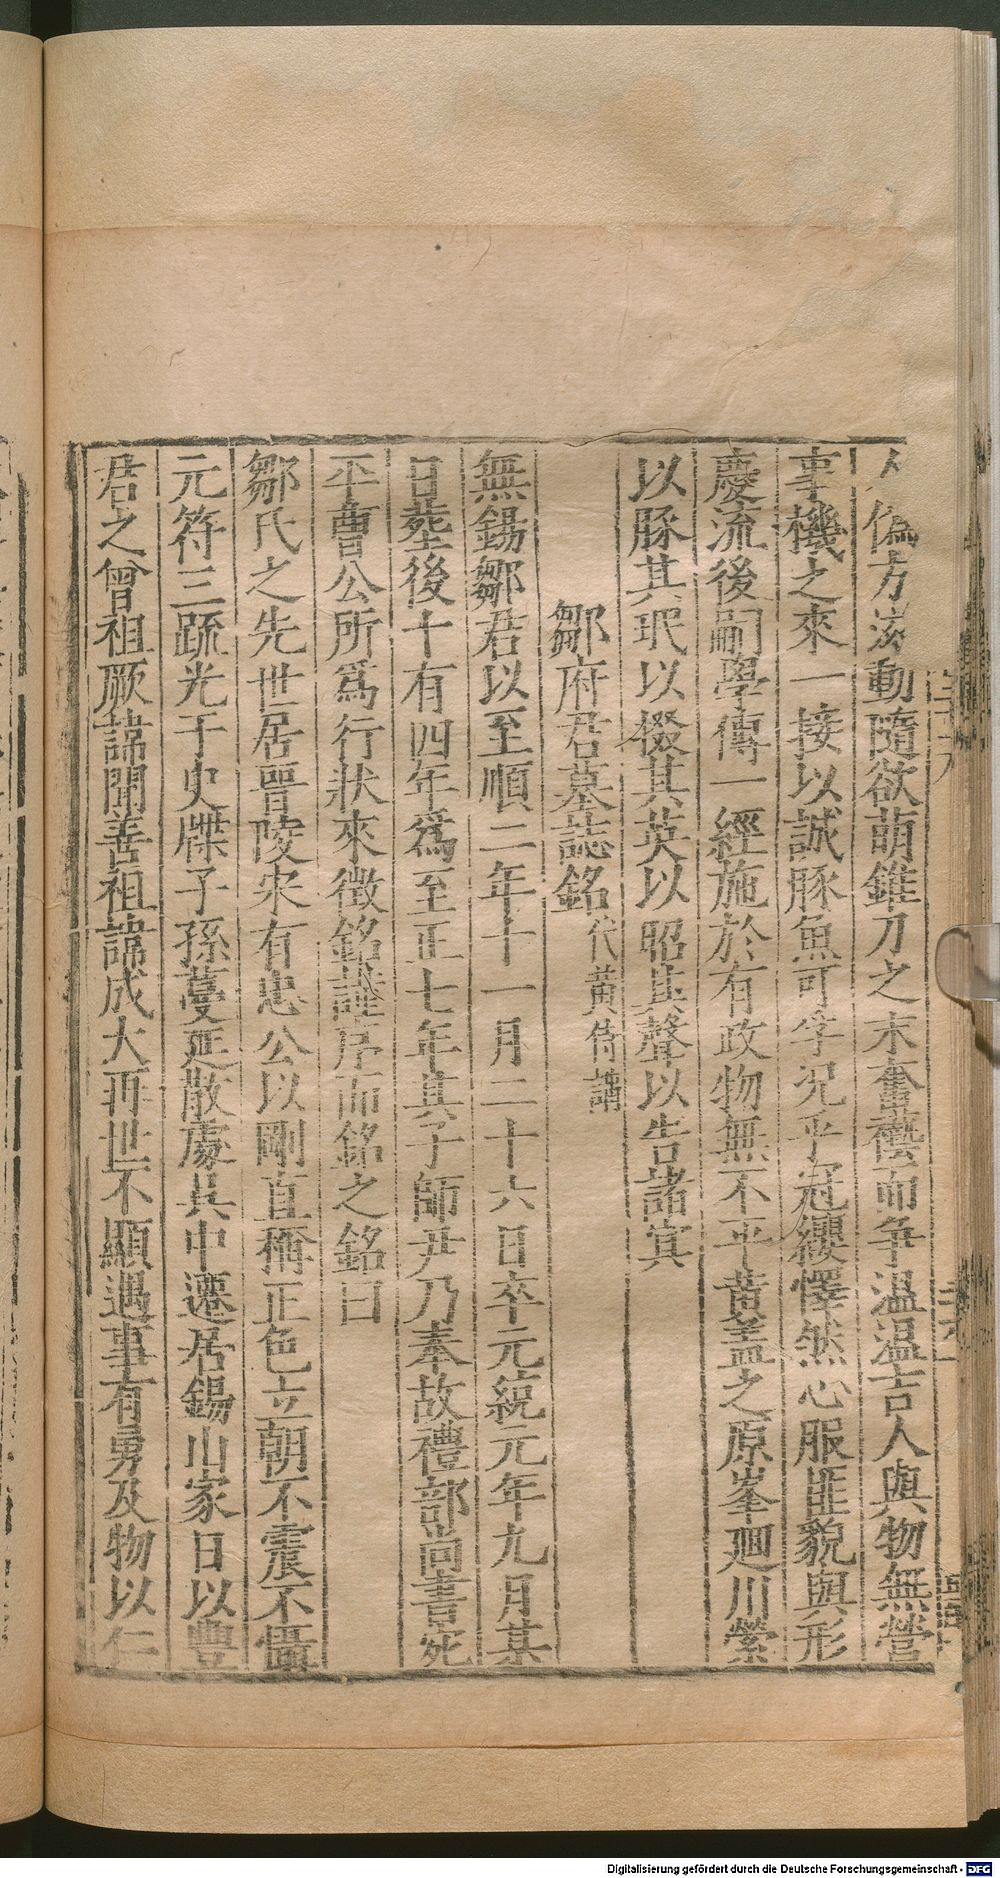 人偽方滋動隨欲萌錐刀之末奮藝而争温温吉人與物無營
事機之來一接以誠豚魚可孚况乎冠纓懌然心服匪貌與形
慶流後嗣學傳一經施於有政物無不平黄盖之原峯廻川縈
以豚其珉以掇其英以昭其聲以告諸冥
鄒府君墓誌銘代黄侍講
無錫鄒君以至順二年十一月二十六日卒元統元年九月某
日塟後十有四年為至正七年其子師尹乃奉故禮部尚書宛
平曹公所為行狀來徵銘謹序而銘之銘曰
鄒氏之先世居晉陵宋有忠公以剛直稱正色立朝不震不懾
元符三疏光于史牒子孫蔓延散處吳中遷居錫山家日以豐
君之曾祖厥諱聞善祖諱成大再世不顯遇事有勇及物以仁
Digitalisierung gefördert durch die Deutsche Forschungsgemeinschaft - DFG